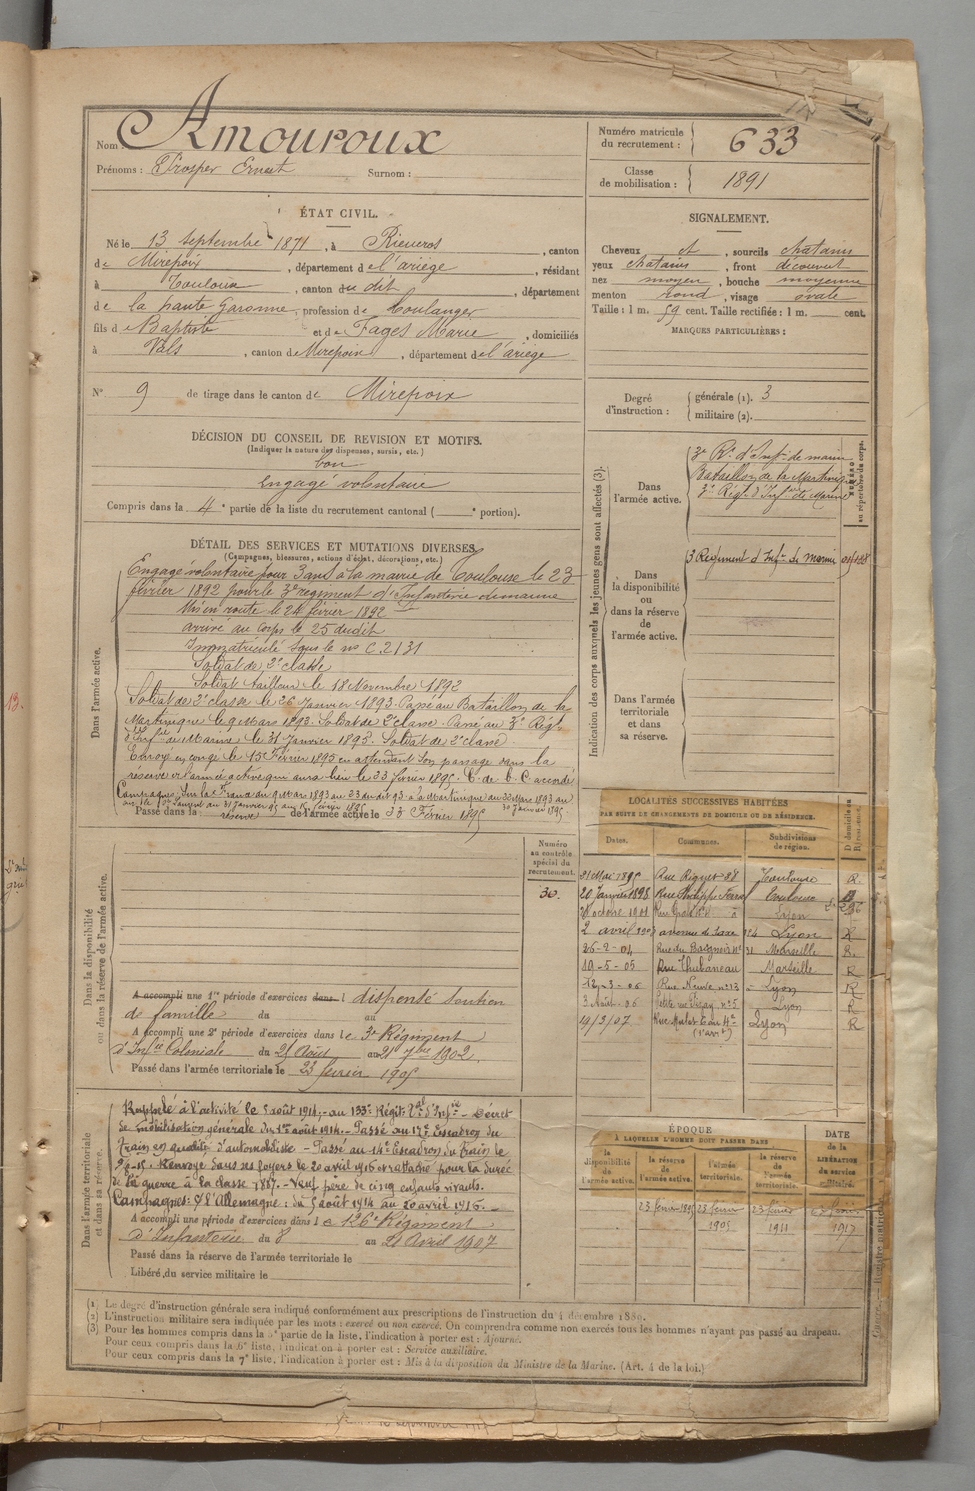 Nom Amouroux
Prénoms : Prosper Ernest Surnom :
Numéro matricule du recrutement : 633
Classe de mobilisation : 1891
ÉTAT CIVIL.
Né le 13 septembre 1871, à Rieucros, canton
de Mirepoix, département de l'ariège, résidant
à Toulouse, canton du dit, département
de la haute Garonne, profession de boulanger
fils de Baptiste et de Fages Marie, domiciliés
à Vals, canton de Mirepoix, département de l'ariège
N° 9 de tirage dans le canton de Mirepoix
SIGNALEMENT.
Cheveux et, sourcils chatains
yeux chatains, front découvert
nez moyen, bouche moyenne
menton rond, visage ovale
Taille : 1 m. 59 cent. Taille rectifiée : 1 m. cent.
MARQUES PARTICULIÈRES :
Degré d'instruction : générale (1). 3
militaire (2).
DÉCISION DU CONSEIL DE REVISION ET MOTIFS.
(Indiquer la nature des dispenses, sursis, etc.)
bon
Engagé volontaire
Compris dans la 4e partie de la liste du recrutement cantonal ( e portion).
DÉTAIL DES SERVICES ET MUTATIONS DIVERSES.
(Campagnes, blessures, actions d'éclat, décorations, etc.)
Dans l'armée active.
Engagé volontaire pour 3 ans à la mairie de Toulouse le 23
février 1892 pour le 3e regiment d'Infanterie de marine
Mis en route le 24 février 1892
arrivé au corps le 25 dudit
Immatriculé sous le no C.2131
Soldat de 2e classe
Soldat tailleur le 18 Novembre 1892
Soldat de 2e classe le 26 Janvier 1893. Passé au Bataillon de la
Martinique le 9 Mars 1893. Soldat de 2e classe. Passé au 3e Régt
d'Infie de Marine le 31 Janvier 1895. Soldat de 2e classe.
Envoyé en congé le 15 Février 1895 en attendant son passage dans la
réserve de l'armée active qui aura lieu le 23 février 1895. C. de B. C. accordé
Passé dans la réserve de l'armée active le 23 Février 1895
Indication des corps auxquels les jeunes gens sont affectés (3).
NUMÉRO au répertoire du corps.
Dans l'armée active.
3e Rt d'Infie de marine
Bataillon de la Martinique
3e Régt d'Infie de Marine
Dans la disponibilité ou dans la réserve de l'armée active.
3 Regiment d'Infie de marine
Dans l'armée territoriale et dans sa réserve.
LOCALITÉS SUCCESSIVES HABITÉES
PAR SUITE DE CHANGEMENTS DE DOMICILE OU DE RÉSIDENCE.
Dates. Communes. Subdivisions de région.
21 Mai 1895 Rue Riquet 28 Toulouse R.
20 Janvier 1898 Toulouse
28 octobre 1901 Lyon
2 avril avenue de Saxe Lyon R
Marseille R.
19-5-05 Rue Thubaneau Marseille R
12-3-06 Rue Neuve no 13 Lyon R
3 Août-06 no 5 Lyon R
19/3/07 Lyon R
Dans la disponibilité ou dans la réserve de l'armée active.
Numéro au contrôle spécial du recrutement.
30.
A accompli une 1re période d'exercices dans l dispensé soutien
de famille du au
A accompli une 2e période d'exercices dans le 3e Régiment
d'Infie Coloniale du 25 Août au 21 7bre 1902.
Passé dans l'armée territoriale le 23 février 1905
Dans l'armée territoriale et dans sa réserve.
Rappelé à l'activité le 5 août 1914, au 133e Régit. Tal d'Infie - Décret
de mobilisation générale du 1er août 1914. - Passé au 17e Escadron du
Train en qualité d'automobiliste - Passé au 14e Escadron du Train le
Renvoyé dans ses foyers le 20 avril 1916 et rattaché pour la durée
de la guerre à la classe 1887. - Neuf père de cinq enfants vivants.
Campagnes : C/ l'Allemagne : du 5 août 1914 au 20 avril 1916.
A accompli une période d'exercices dans le 126e Régiment
d'Infanterie du 8 au 21 Avril 1907
Passé dans la réserve de l'armée territoriale le
Libéré du service militaire le
ÉPOQUE
À LAQUELLE L'HOMME DOIT PASSER DANS
la disponibilité de l'armée active. la réserve de l'armée active. l'armée territoriale. la réserve de l'armée territoriale.
DATE de la LIBÉRATION du service militaire.
23 février 1895 23 février 1905 23 février 1911 1917
(1) Le degré d'instruction générale sera indiqué conformément aux prescriptions de l'instruction du 4 décembre 1889.
(2) L'instruction militaire sera indiquée par les mots : exercé ou non exercé. On comprendra comme non exercés tous les hommes n'ayant pas passé au drapeau.
(3) Pour les hommes compris dans la 5e partie de la liste, l'indication à porter est : Ajourné.
Pour ceux compris dans la 6e liste, l'indication à porter est : Service auxiliaire.
Pour ceux compris dans la 7e liste, l'indication à porter est : Mis à la disposition du Ministre de la Marine. (Art. 4 de la loi.)